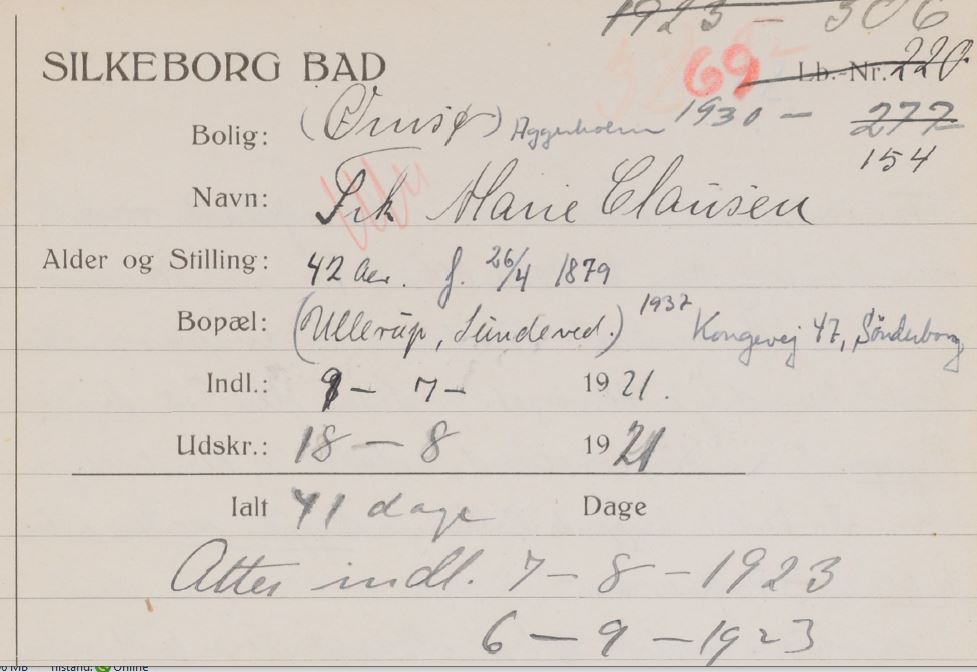 1923 – 306
SILKEBORG BAD 69 Lb.-Nr. 220
Bolig: (Ørnsø) Aggerholm 1930 – 277
154
Navn: Frk Marie Clausen
Alder og Stilling: 42 Aar. f. 26/4 1879
Bopæl: (Ullerup, Sundeved.) 1937 Kongevej 47, Sønderborg
Indl.: 9 – 7 – 1921.
Udskr.: 18 – 8 1921
Ialt 41 dage Dage
Atter indl. 7 – 8 – 1923
6 – 9 – 1923